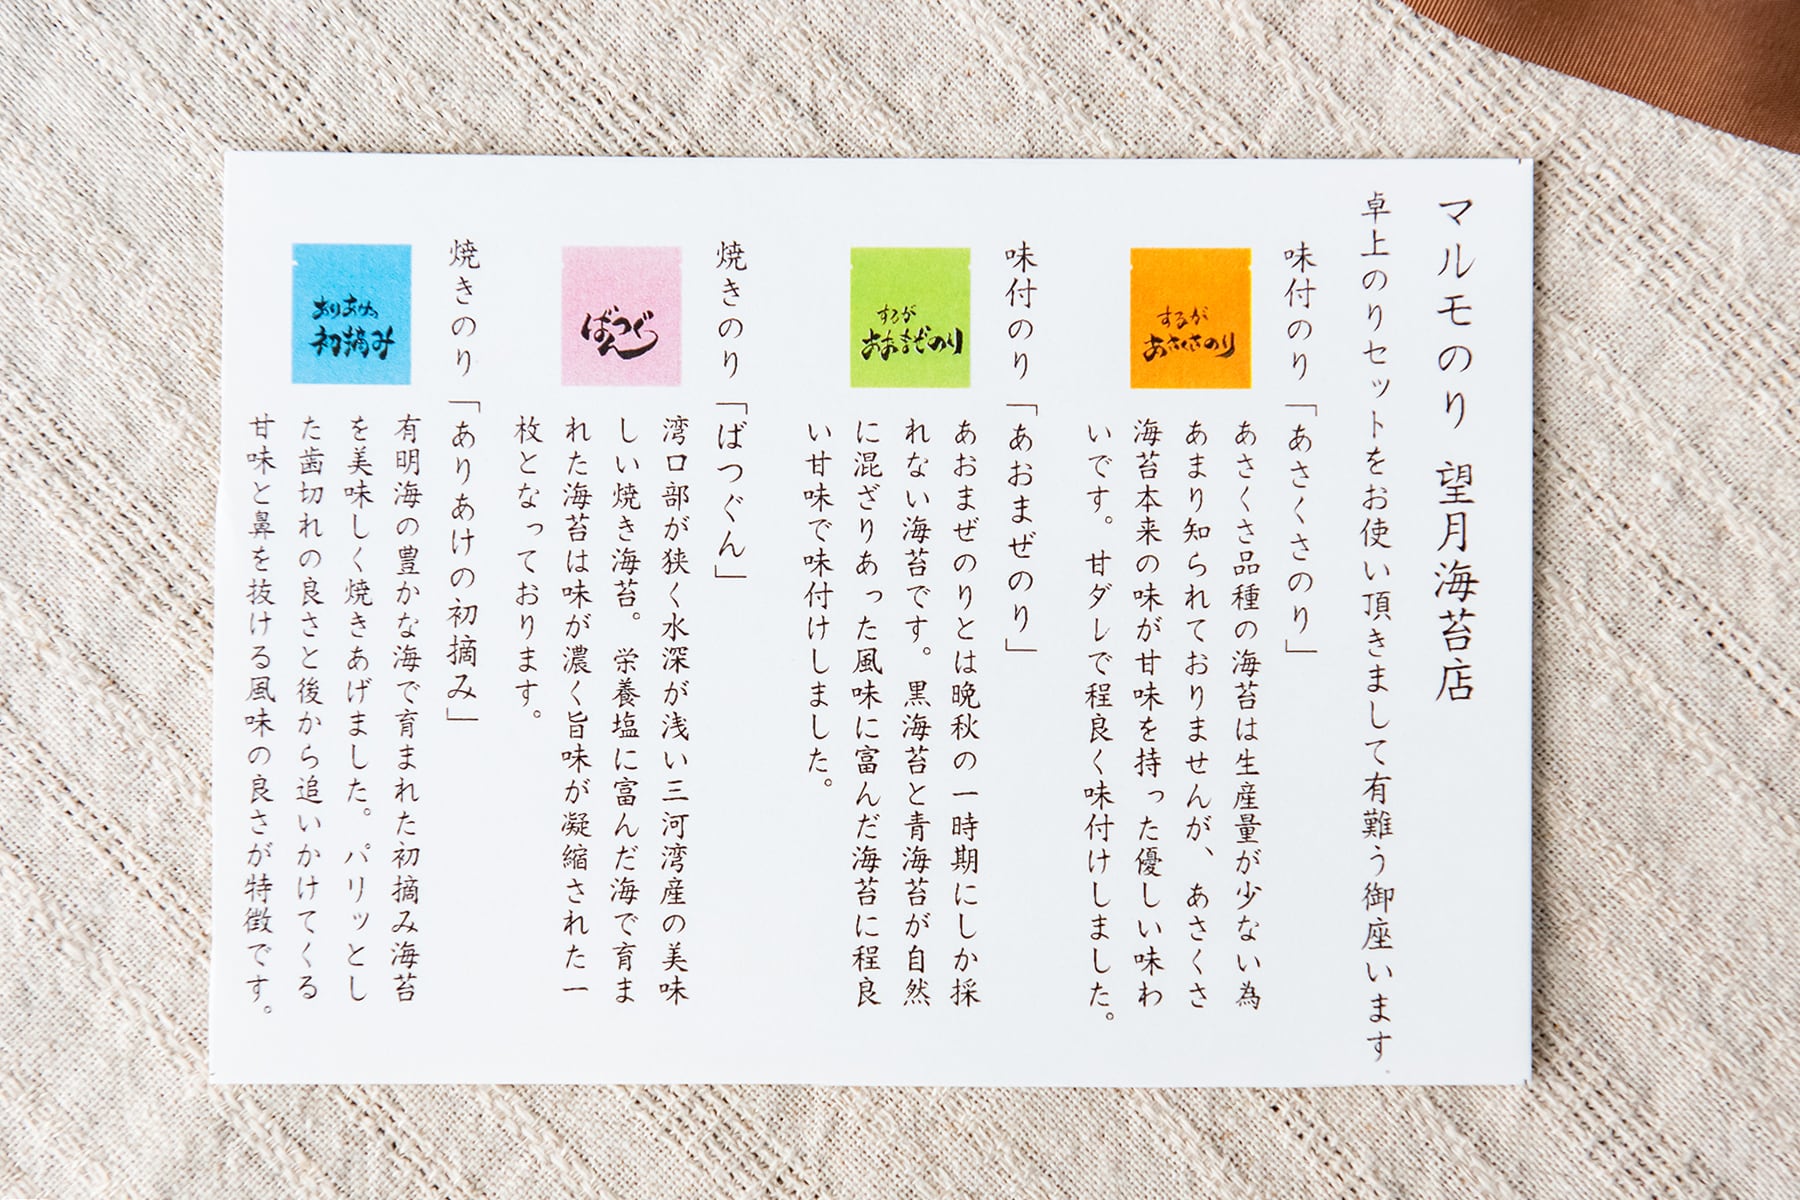 マルモのり 望月海苔店
卓上のりセットをお使い頂きまして有難う御座います
味付のり「あさくさのり」
するが
あさくさのり
あさくさ品種の海苔は生産量が少ない為
あまり知られておりませんが、あさくさ
海苔本来の味が甘味を持った優しい味わ
いです。甘ダレで程良く味付けしました。
味付のり「あおまぜのり」
するが
あおまぜのり
あおまぜのりとは晩秋の一時期にしか採
れない海苔です。黒海苔と青海苔が自然
に混ざりあった風味に富んだ海苔に程良
い甘味で味付けしました。
焼きのり「ばつぐん」
ばつぐん
湾口部が狭く水深が浅い三河湾産の美味
しい焼き海苔。栄養塩に富んだ海で育ま
れた海苔は味が濃く旨味が凝縮された一
枚となっております。
焼きのり「ありあけの初摘み」
ありあけの
初摘み
有明海の豊かな海で育まれた初摘み海苔
を美味しく焼きあげました。パリッとし
た歯切れの良さと後から追いかけてくる
甘味と鼻を抜ける風味の良さが特徴です。